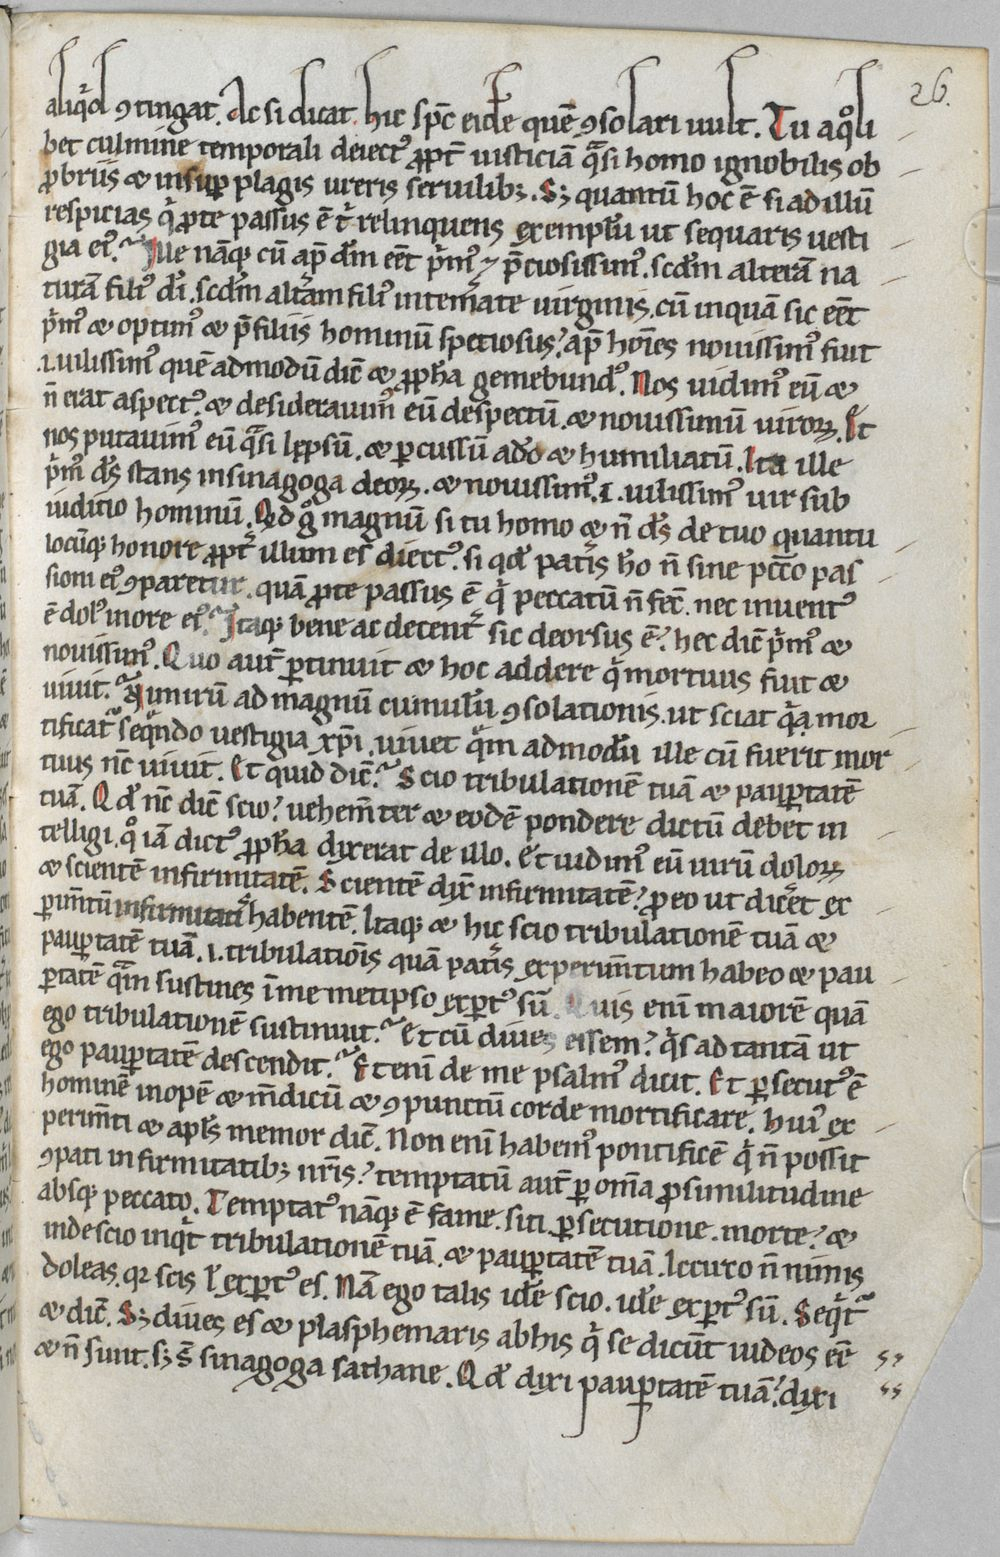 26.
aliq̄d ꝯtingat. Ac si dicat. hic sp̄c eidē quē ꝯsolari uult. Tu a qͦli
bet culmine temporali deiectꝰ ꝓpt̄ iusticiā q̄si homo ignobilis ob
ꝓbriis ⁊ insuꝑ plagis ureris seruilibꝫ. Sꝫ quantū hoc ē si ad illū
respicias q̄ ꝓ te passus ē t̄ relinquens exemplū ut sequaris uesti
gia eiꝰ. Ille nāqꝫ cū ap̄ dm̄ eēt p̄mꝰ ⁊ p̄ciosissimꝰ. scd̄m alterā na
turā filiꝰ dī. scd̄m alt̄am filiꝰ intem̄ate uirginis. cū inquā sic eēt
p̄mꝰ ⁊ optimꝰ ⁊ p̄ filiis hominū speciosus? ap̄ hōies nouissimꝰ fiut
.i. uilissimꝰ quē admodū dic̄ ⁊ ꝓph̄a gemebundꝰ. Nos uidimꝰ eū ⁊
n̄ erat aspectꝰ. ⁊ desiderauimꝰ eū despectū. ⁊ nouissimū uiroꝝ. Et
nos putauimꝰ eū q̄si lep̄sū. ⁊ ꝑcussū a dō ⁊ humiliatū. Ita ille
p̄mꝰ dꝰs stans in sinagoga deoꝝ. ⁊ nouissimꝰ .i. uilissimꝰ uir sub
iuditio hominū. Qd gͦ magnū si tu homo ⁊ n̄ dꝰs de tuo quantu
locūqꝫ honore ꝓpt̄ illum es diectꝰ. si qd̄ patīs h̄o n̄ sine pc̄c̄o pas
sioni eiꝰ ꝯparetur. quā ꝓ te passus ē q̄ peccatū n̄ fec̄. nec inuentꝰ
ē dolꝰ in ore eiꝰ. Itaqꝫ bene ac decent̄ sic deorsus ē? hec dic̄ p̄mꝰ ⁊
nouissimꝰ. Quo aut̄ ꝑtinuit ⁊ hoc addere q̄ mortuus fiut ⁊
uiuit. Nimirū ad magnū cumulū ꝯsolationis. ut sciat q̄a mor
tificatꝰ seq̄ndo uestigia xp̄i. uiuet q̄m admodū ille cū fuerit mor
tuus nc̄ uiuit. Et quid dic̄? Scio tribulationē tuā ⁊ pauꝑtatē
tuā. Qd̄ nc̄ dic̄ scio? uehem̄ter ⁊ eodē pondere dictū debet in
telligi. qͦ iā dictꝰ ꝓph̄a dixerat de illo. Et uidimꝰ eū uirū doloꝝ
⁊ scientē infirmitatē. Scientē dix̄ infirmitatē? ꝓ eo ut dic̄et ex
ꝑim̄tū infirmitati habentē. Itaqꝫ ⁊ hic scio tribulationē tuā ⁊
pauꝑtatē tuā. .i. tribulatiōis quā patīs experim̄tum habeo ⁊ pau
ꝑtatē q̄m sustines ī me metipso exꝑtꝰ sū. Quis enī maiorē quā
ego tribulationē sustinuit? Et cū diues essem? q̄s ad tantā ut
ego pauꝑtatē descendit? Et enī de me psalmꝰ dicit. Et ꝑsecutꝰ ē
hominē inopē ⁊ m̄dicū ⁊ ꝯpunctū corde mortificare. Huiꝰ ex
perim̄ti ⁊ apl̄s memor dic̄. Non enī habemꝰ pontificē q̄ n̄ possit
ꝯpati infirmitatibꝫ nr̄is? temptatū aut̄ ꝑ om̄a ꝓ similitudine
absqꝫ peccato. Temptatꝰ nāqꝫ ē fame. siti. ꝑsecutione. morte? ⁊
inde scio inq̄t tribulationē tuā. ⁊ pauꝑtatē tuā. Iccirco n̄ nimis
doleas. qꝛ scis l̄ exꝑtꝰ es. Nā ego talis idē scio. idē exꝑtꝰ sū. Seq̄tꝰ
⁊ dic̄. Sꝫ diues es ⁊ plasphemaris ab his q̄ se dicūt iudeos eē
⁊ n̄ sunt. sꝫ s̄ sinagoga sathane. Qd̄ dixi pauꝑtatē tuā? dixi